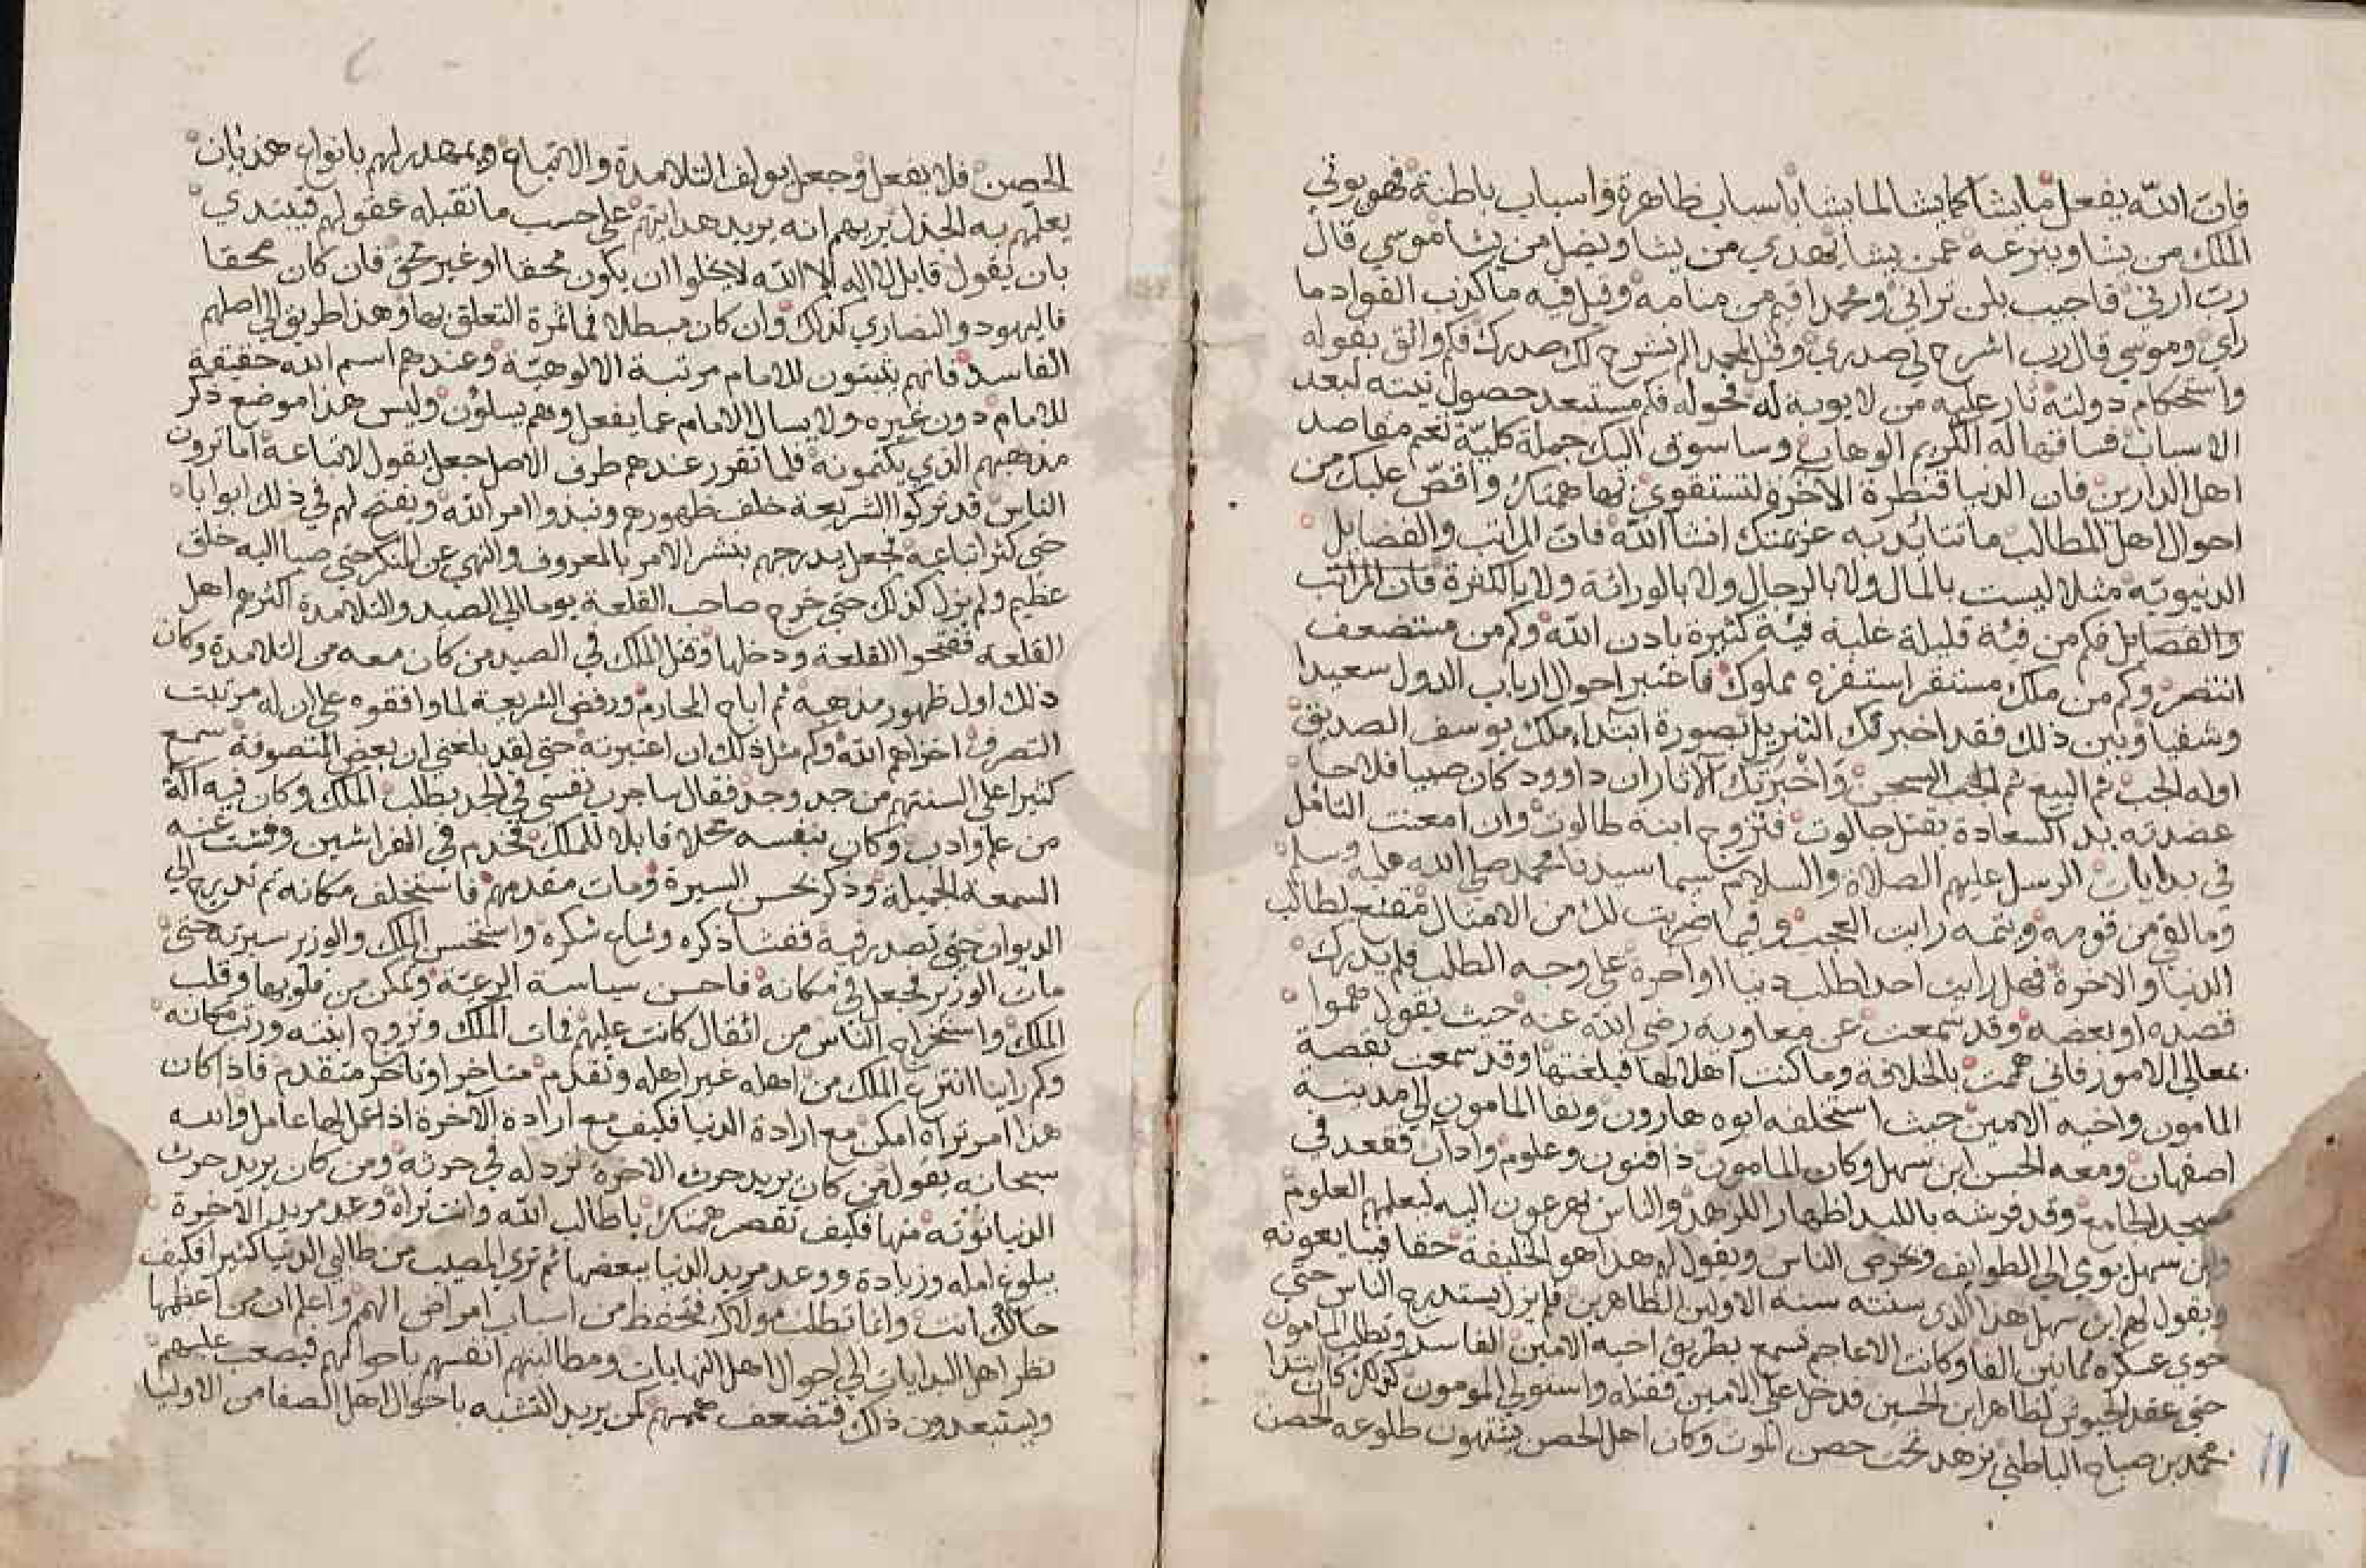 فان الله يفعل ما يشا كما يشا لما يشا باسباب ظاهرة واسباب باطنة فهو يوتي
الملك من يشا وينزعه عمن يشا يهدي من يشا ويضل من يشا موسي قال
رب ارني فاجيب بلن تراني ومحمد اقيم من منامه وقيل فيه ما كذب الفواد ما
راي وموسي قال رب اشرح لي صدري وقيل لمحمد الم نشرح لك صدرك فكم واثق بقوله
واستحكام دولته ثار عليه من لا يوبه له فحوله فكم مستبعد حصول نيته لبعد
الاسباب فساقها له الكريم الوهاب وساسوق اليك جملة كلية تعم مقاصد
اهل الدارين فان الدنيا قنطرة الآخرة لتستقوي بها همتك واقص عليك من
احوال اهل المطالب ما تتائد به عزيمتك انشا الله فان المراتب والفضايل
الدنيوية مثلا ليست بالمال ولا بالرجال ولا بالوراثة ولا بالكثرة فان المراتب
والفضايل فكم من فئة قليلة غلبة فئة كثيرة باذن الله وكم من مستضعف
انتصر وكم من ملك مستقر استفزه مملوك فاختبر احوال ارباب الدول سعيدا
وشقيا وبين ذلك فقد اخبرتك التنزيل بصورة ابتداء ملك يوسف الصديق
اوله الجب ثم البيع ثم الجب السجن وَاخْبَرَتك الآثار ان داوود كان صبيا فلاحا
عضدته يد السعادة بقتل جالوت فتزوج ابنة طالوت وان امعنت التامل
في بدايات الرسل عليهم الصلاة والسلام سيما سيدنا محمد صلي الله عليه وسلم
وما لقي من قومه ويتمه رايت العجب وفيما ضربت لك من الامثال مقنع لطالب
الدنيا والاخرة فهل رايت احدا طلب دنيا او اخرة علي وجه الطلب فلم يدرك
قصده او بعضه وقد سمعت عن معاوية رضي الله عنه حيث يقول هموا
بمعالي الامور فاني هممت بالخلافة وما كنت اهلا لها فبلغتها وقد سمعت بقصة
المامون واخيه الامين حيث استخلفه ابوه هارون ونفا المامون الي مدينة
اصفهان ومعه الحسن ابن سهل وكان المامون ذا فنون وعلوم واداب فقعد في
مسجد الجامع وقد فرشه باللبد اظهارا للزهد والناس يهرعون اليه ليعلمهم العلوم
وابن سهل يوي الي الطوايف ويحرض الناس ويقول لهم هذا هو الخليفة حقا فيبايعونه
ويقول لهم ابن سهل هذا الذي سنته سنة الاولين الطاهرين فلم يزل يستدرج الناس حتي
حوي عسكره ثمانين الفا وكانت الاعاجم تسمع بطريق اخيه الامين الفاسد وتطلب المامون
حتي عقد الجيوش لطاهر ابن الحسين فدخل علي الامين فقتله واستولي المومون كذلك كان ابتدا
محمد بن صباح الباطني تزهد تحت حصن الموت وكان اهل الحصن يشتهون طلوعه الحصن
الحصن فلا يفعل وجعل يولف التلامدة والاتباع ويمهد لهم بانواع هذيان
يعلمهم به الجدل يريهم انه يريد هدايتهم علي حسب ما تقبله عقولهم فيبتدي
بان يقول قايل لا اله الا الله لا يخلوا ان يكون محقا او غير محق فان كان محقا
فاليهود والنصاري كذلك وان كان مبطلا فما ثمرة التعلق بها وهذا طريق الي اصلهم
الفاسد فانهم يثبتون للامام مرتبة الالوهية وعندهم اسم الله حقيقة
للامام دون غيره ولا يسال الامام عما يفعل وهم يسلون وليس هذا موضع ذكر
مذهبهم الذي يكتمونه فلما تقرر عندهم طرف الاصل جعل يقول لاتباعه اما ترون
الناس قد تركوا الشريعة خلف ظهورهم ونبذوا امر الله ويفتح لهم في ذلك ابوابا
حتي كثر اتباعه فجعل يدرجهم بنشر الامر بالمعروف والنهي عن المنكر حتي صبا اليه خلق
عظيم ولم يزل كذلك حتي خرج صاحب القلعة يوما الي الصيد والتلامدة اكثرهم اهل
القلعة ففتحوا القلعة ودخلها وقتل الملك في الصيد من كان معه من التلامدة وكان
ذلك اول ظهور مذهبه ثم اباح المحارم ورفض الشريعة لما وافقوه علي ان له مرتبت
التصرف اخزاهم الله وكم مثل ذلك ان اعتبرته حتي لقد بلغني ان بعض المتصوفة سمع
كثيرا علي السنتهم من جد وجد فقال ساجرب نفسي في الجد بطلب الملك وكان فيه آلة
من علم وادب وكان بنفسه محلا قابلا للملك فخدم في الفراشين وفشت عنه
السمعة الجميلة وذكر بحسن السيرة ومات مقدمهم فاستخلف مكانه ثم تدرج الي
الديوان حتي تصدر فيه ففشا ذكره وشاع شكره واستحسن الملك والوزير سيرته حتي
مات الوزير فجعل في مكانه فاحسن سياسة الرعية وتمكن من قلوبها وقلب
الملك واستخراج الناس من اثقال كانت عليهم فمات الملك وتزوج ابنته ورتب مكانه
وكم راينا انتزع الملك من اهله غير اهله وتقدم متاخر او تاخر متقدم فاذا كان
هذا امر تراه امكن مع ارادة الدنيا فكيف مع ارادة الآخرة اذا عمل لها عامل والله
سبحانه يقول من كان يريد حرث الاخرة نزد له في حرثه ومن كان يريد حرث
الدنيا نؤته منها فكيف تقصر همتك يا طالب الله وانت تراه وعد مريد الآخرة
ببلوغ امله وزيادة ووعد مريد الدنيا ببعضها ثم تري المصيب من طالبي الدنيا كثيرا فكيف
حالك انت وانما تطلب مولاك فتحفظ من اسباب امراض الهمم واعلم ان من اعظمها
نظر اهل البدايات الي احوال اهل النهايات ومطالبتهم انفسهم باحوالهم فيصعب عليهم
ويستبعدون ذلك فتضعف هممهم كمن يريد التشبه باحوال اهل الصفا من الاوليا